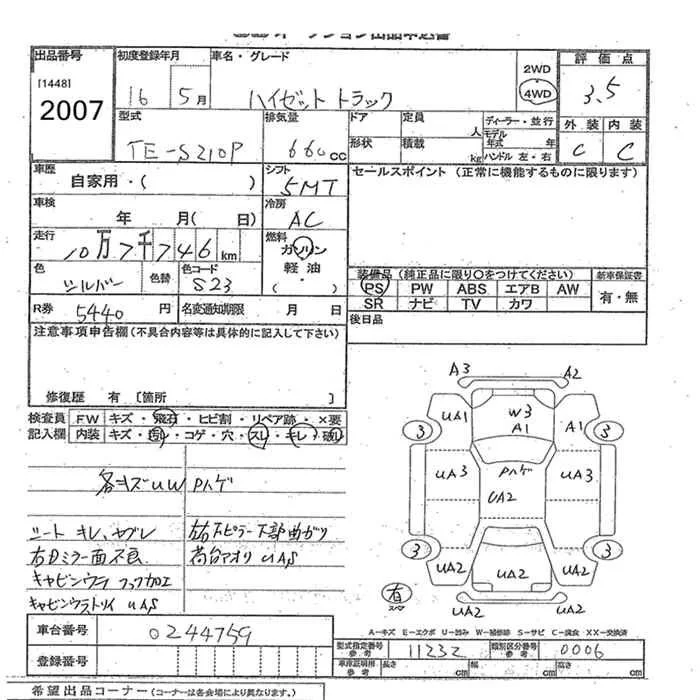 出品番号
[1448]
2007
初度登録年月
16 5月
車名・グレード
ハイゼット トラック
2WD
4WD
評価点
3.5
外装 内装
C C
型式
TE-S210P
排気量
660cc
ドア
形状
定員
人
積載
kg
ディーラー・並行
モデル年式 年
ハンドル 左・右
車歴
自家用・( )
シフト
5MT
セールスポイント (正常に機能するものに限ります)
車検
年 月( 日)
冷房
AC
走行
10万7千746km
燃料
ガソリン
軽油
( ・ )
色
シルバー
色替
色コード
S23
装備品 (純正品に限り○をつけてください)
新車保証書
PS PW ABS エアB AW
SR ナビ TV カワ
有・無
R券 5440円
名変通知期限 月 日
後日品
注意事項申告欄(不具合内容等は具体的に記入して下さい)
修復歴 有〔箇所 〕
検査員
記入欄
FW キズ・飛石・ヒビ割・リペア跡・×要
内装 キズ・汚レ・コゲ・穴・スレ・キレ・破レ
各キズUW Pハゲ
シート キレ、ヤブレ
右Dミラー面不良
キャビンウラ フック加工
キャビンウラトリイ UAS
左右下ピラー下部曲がり
荷台アオリ UAS
A3 A2
UA1 W3 A1 A1
3 3
UA3 Pハゲ UA3
UA2
3 3
UA2 UA2 UA2
有
スペア
UA2 UA2
A-キズ E-エクボ U-凹み W-補修跡 S-サビ C-腐食 XX-交換済
車台番号
0244759
型式指定番号
参考
11232
類別区分番号
参考
0006
登録番号
車庫証明用
参考
長さ cm 幅 cm 高さ cm
希望出品コーナー (コーナーは各会場により異なります。)